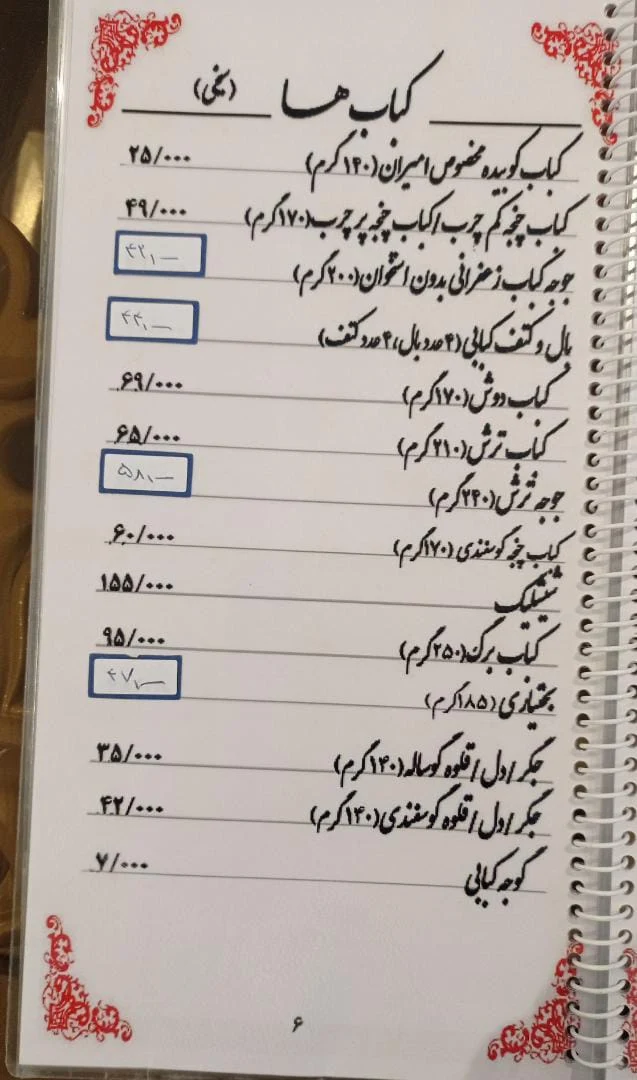 کباب ها (سیخی)
کباب کوبیده مخصوص امیران (۱۴۰ گرم) ۲۵/۰۰۰
کباب چنجه کم چرب / کباب چنجه پر چرب (۱۷۰گرم) ۴۹/۰۰۰
جوجه کباب زعفرانی بدون استخوان (۲۰۰گرم) ۴۲,—
بال و کتف کبابی (۴ عدد بال، ۴ عدد کتف) ۴۴,—
کباب دوش (۱۷۰گرم) ۶۹/۰۰۰
کباب ترش (۲۱۰گرم) ۶۵/۰۰۰
جوجه ترش (۲۴۰گرم) ۵۸,—
کباب چنجه گوسفندی (۱۷۰گرم) ۶۰/۰۰۰
شیشلیک ۱۵۵/۰۰۰
کباب برگ (۲۵۰گرم) ۹۵/۰۰۰
بختیاری (۱۸۵گرم) ۴۷,—
جگر / دل / قلوه گوساله (۱۴۰گرم) ۳۵/۰۰۰
جگر / دل / قلوه گوسفندی (۱۴۰گرم) ۴۲/۰۰۰
گوجه کبابی ۷/۰۰۰
۶